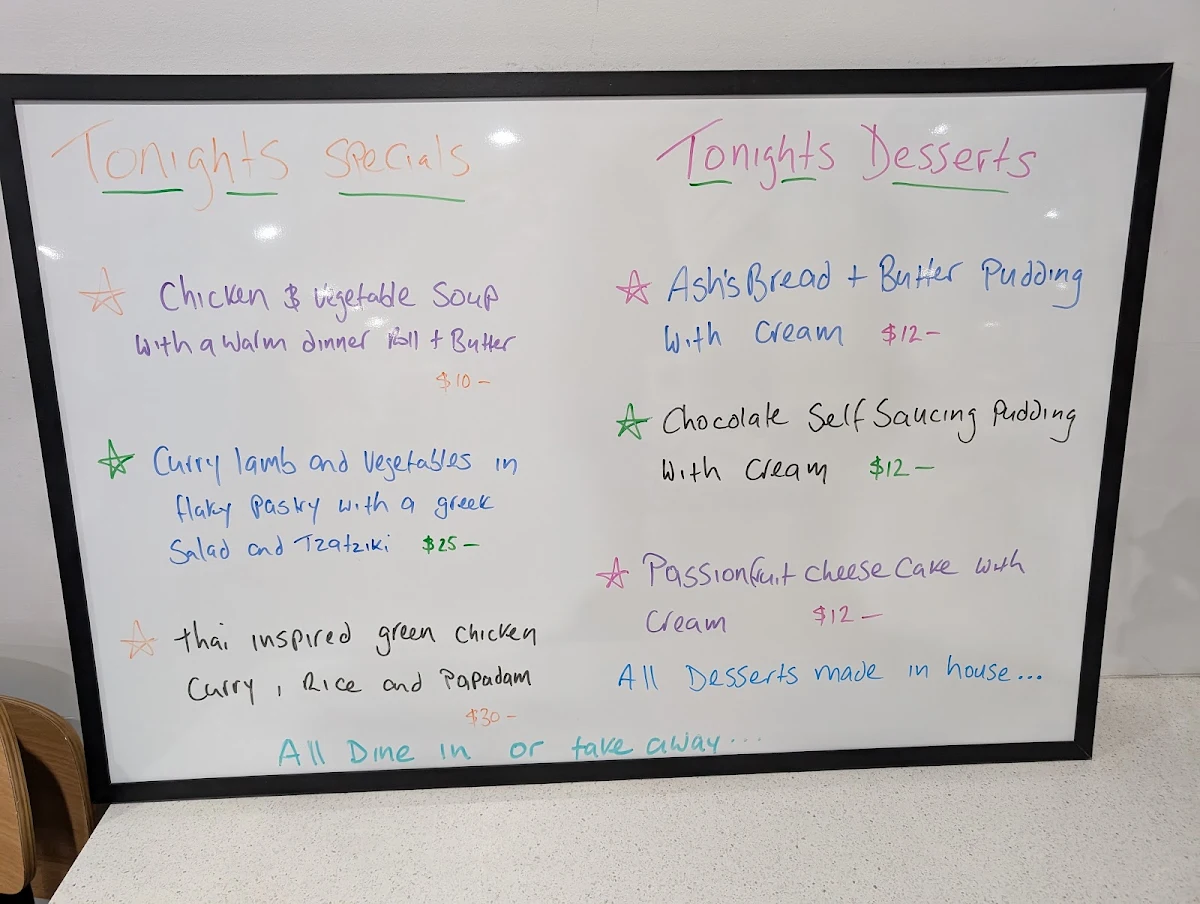 Tonights Specials
Chicken & Vegetable Soup
with a warm dinner Roll + Butter
$10 -
Curry lamb and Vegetables in
flaky Pastry with a greek
Salad and Tzatziki $25 -
thai inspired green chicken
Curry, Rice and Papadam
$30 -
Tonights Desserts
Ash's Bread + Butter Pudding
with Cream $12 -
Chocolate Self Saucing Pudding
with Cream $12 -
Passionfruit cheese Cake with
Cream $12 -
All Desserts made in house...
All Dine in or take away...